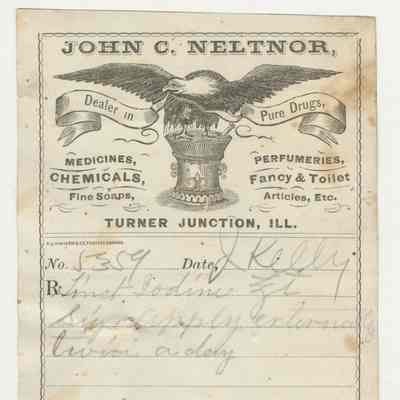 JOHN C. NELTNOR,
Dealer in
Pure Drugs,
MEDICINES,
CHEMICALS,
Fine Soaps,
PERFUMERIES,
Fancy & Toilet
Articles, Etc.
TURNER JUNCTION, ILL.
No. 5359 Date, J Kelly
R: Tinct Iodine
Sig. Apply externally
twice a day